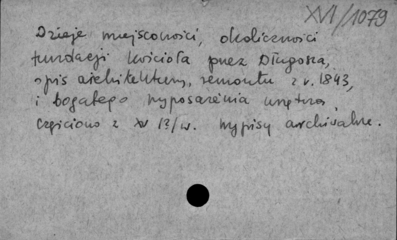 XVI/1079
Dzieje miejscowości, okoliczności
fundacji kościoła przez Długosza,
opis architektury, remontu z r. 1893,
i bogatego wyposażenia wnętrza,
częściowo z XV w. Wypisy archiwalne.